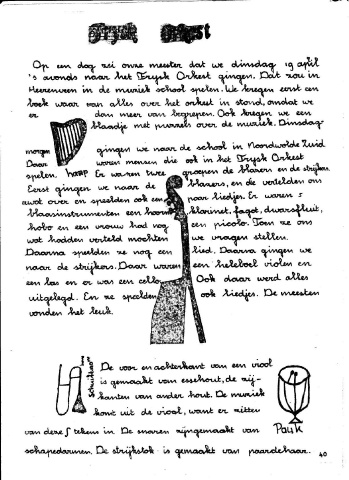 Frysk Orkest
Op een dag zei onze meester dat we dinsdag 19 april
's avonds naar het Frysk Orkest gingen. Dat zou in
Heerenveen in de muziek school spelen. We kregen eerst een
boek waar van alles over het orkest in stond, omdat we
er dan meer van begrepen. Ook kregen we een
blaadje met puzzels over de muziek. Dinsdag-
morgen gingen we naar de school in Noordwolde Zuid
Daar waren mensen die ook in het Frysk Orkest
spelen. harp Er waren twee groepen de blazers en de strijkers.
Eerst gingen we naar de blazers, en de vertelden ons
wat over en speelden ook een paar liedjes. Er waren 5
blaasinstrumenten een hoorn klarinet, fagot, dwarsfluit,
hobo en een vrouw had nog een picolo. Toen ze ons
wat hadden verteld mochten we vragen stellen.
Daarna speelden ze nog een lied. Daarna gingen we
naar de strijkers. Daar waren een heleboel violen en
een bas en er was een cello. Ook daar werd alles
uitgelegd. En ze speelden ook liedjes. De meesten
vonden het leuk.
Schuiftrom
De voor en achterkant van een viool
is gemaakt van essehout, de zij-
kanten van ander hout. De muziek
komt uit de viool, want er zitten
van deze ʃ tekens in. De snaren zijn gemaakt van Pauk
schapedarmen. De strijkstok is gemaakt van paardehaar.
40